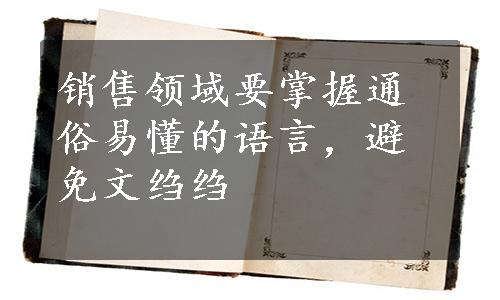 销售领域要掌握通
俗易懂的语言，避
免文绉绉